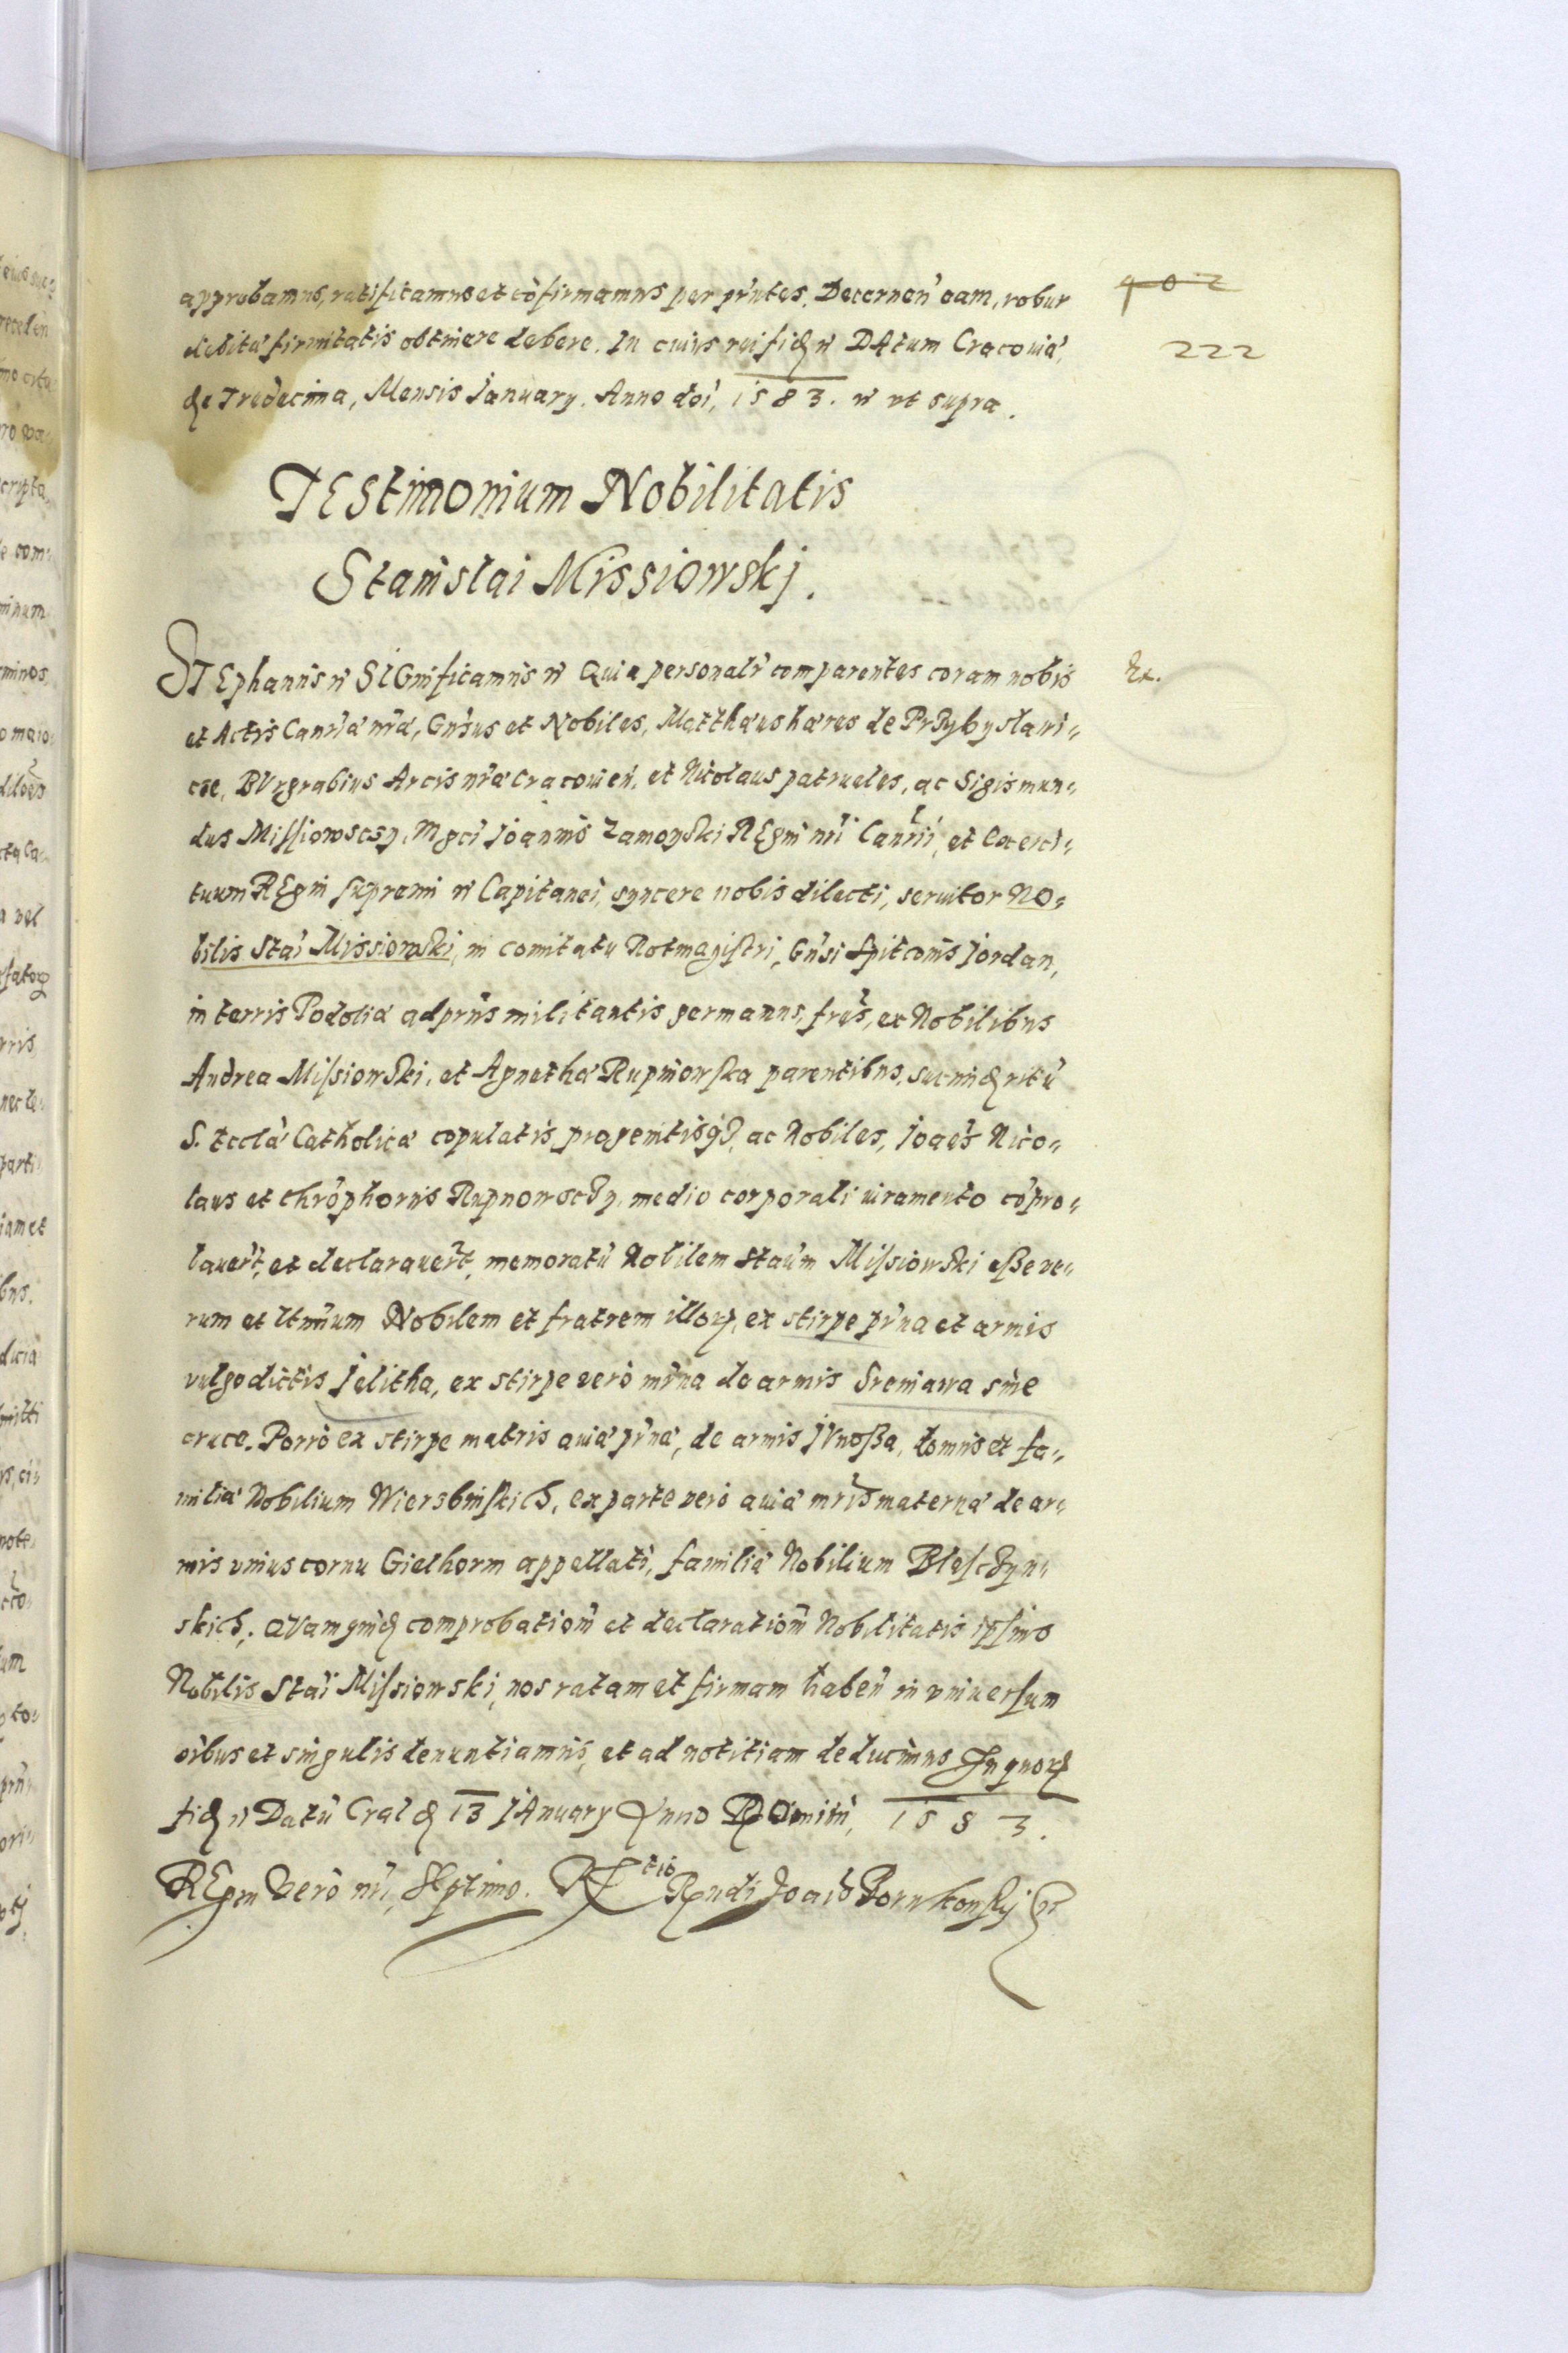 approbamus, ratificamus et cōfirmamus per pn̄tes. Decernen̄ eam, robur
debitæ firmitatis obtinere debere. In cuius rei fid n̄ DAtum Cracouiæ,
die Tredecima, Mensis January. Anno doi, 1583. n̄ vt supra.
402
222
TEStimonium Nobilitatis
Stanislai Missiowskj.
STEphanus n̄ SIGnificamus n̄ Quia personalr̄ comparentes coram nobis
Rx.
et Actis Canr̄iæ nr̄æ, Gn̄sus et Nobiles, Matthæus hæres de Przybyslaui-
cze, BUrgrabius Arcis nr̄æ Cracouien̄, et Nicolaus patrueles, ac Sigismun-
dus Missiowsczy, Mgci Joannis Zamoyski REgni nr̄i Canr̄ii, et Exerci-
tuum REgni supremi n̄ Capitanei, syncere nobis dilecti, seruitor NO-
bilis Stai Missiowski, in comitatu Rotmagistri, Gn̄si Spitconis Jordan,
in terris Podoliæ ad pn̄s militantis germanus, fres, ex Nobilibus
Andrea Missiowski, et Agnetha Rupniowska parentibus, secund ritū
S. Eccliæ Catholicæ copulatis progenitisq3, ac Nobiles, Joaēs Nico-
laus et chrōphorus Rupnowsczy, medio corporali iuramento cōpro-
bauert, et declarauert, memoratū Nobilem Staūm Missiowski esse ve-
rum et ltm̄um Nobilem et fratrem illor, ex stirpe pr̄na et armis
vulgo dictis Jelitha, ex stirpe verò mr̄na de armis Sreniawa sine
cruce. Porrò ex stirpe matris auiæ pr̄næ, de armis JUnossa, domus et fa-
miliæ Nobilium Wiersbinskich, ex parte verò auiæ mr̄is maternæ de ar-
mis vnius cornu Gielhorm appellati, familiæ Nobilium Blesczyn-
skich. QUam quid comprobationē et declarationē Nobilitatis ipsius
Nobilis Stai Missiowski, nos ratam et firmam haben̄ in vniuersum
oībus et singulis denuntiamus, et ad notitiam deducimus In quor
fid n̄ Datū Cral d 13 JAnuary Anno DOmini, 1583.
REgni Verò nr̄i, Septimo. Rtio Rndi Joais Borukouskj